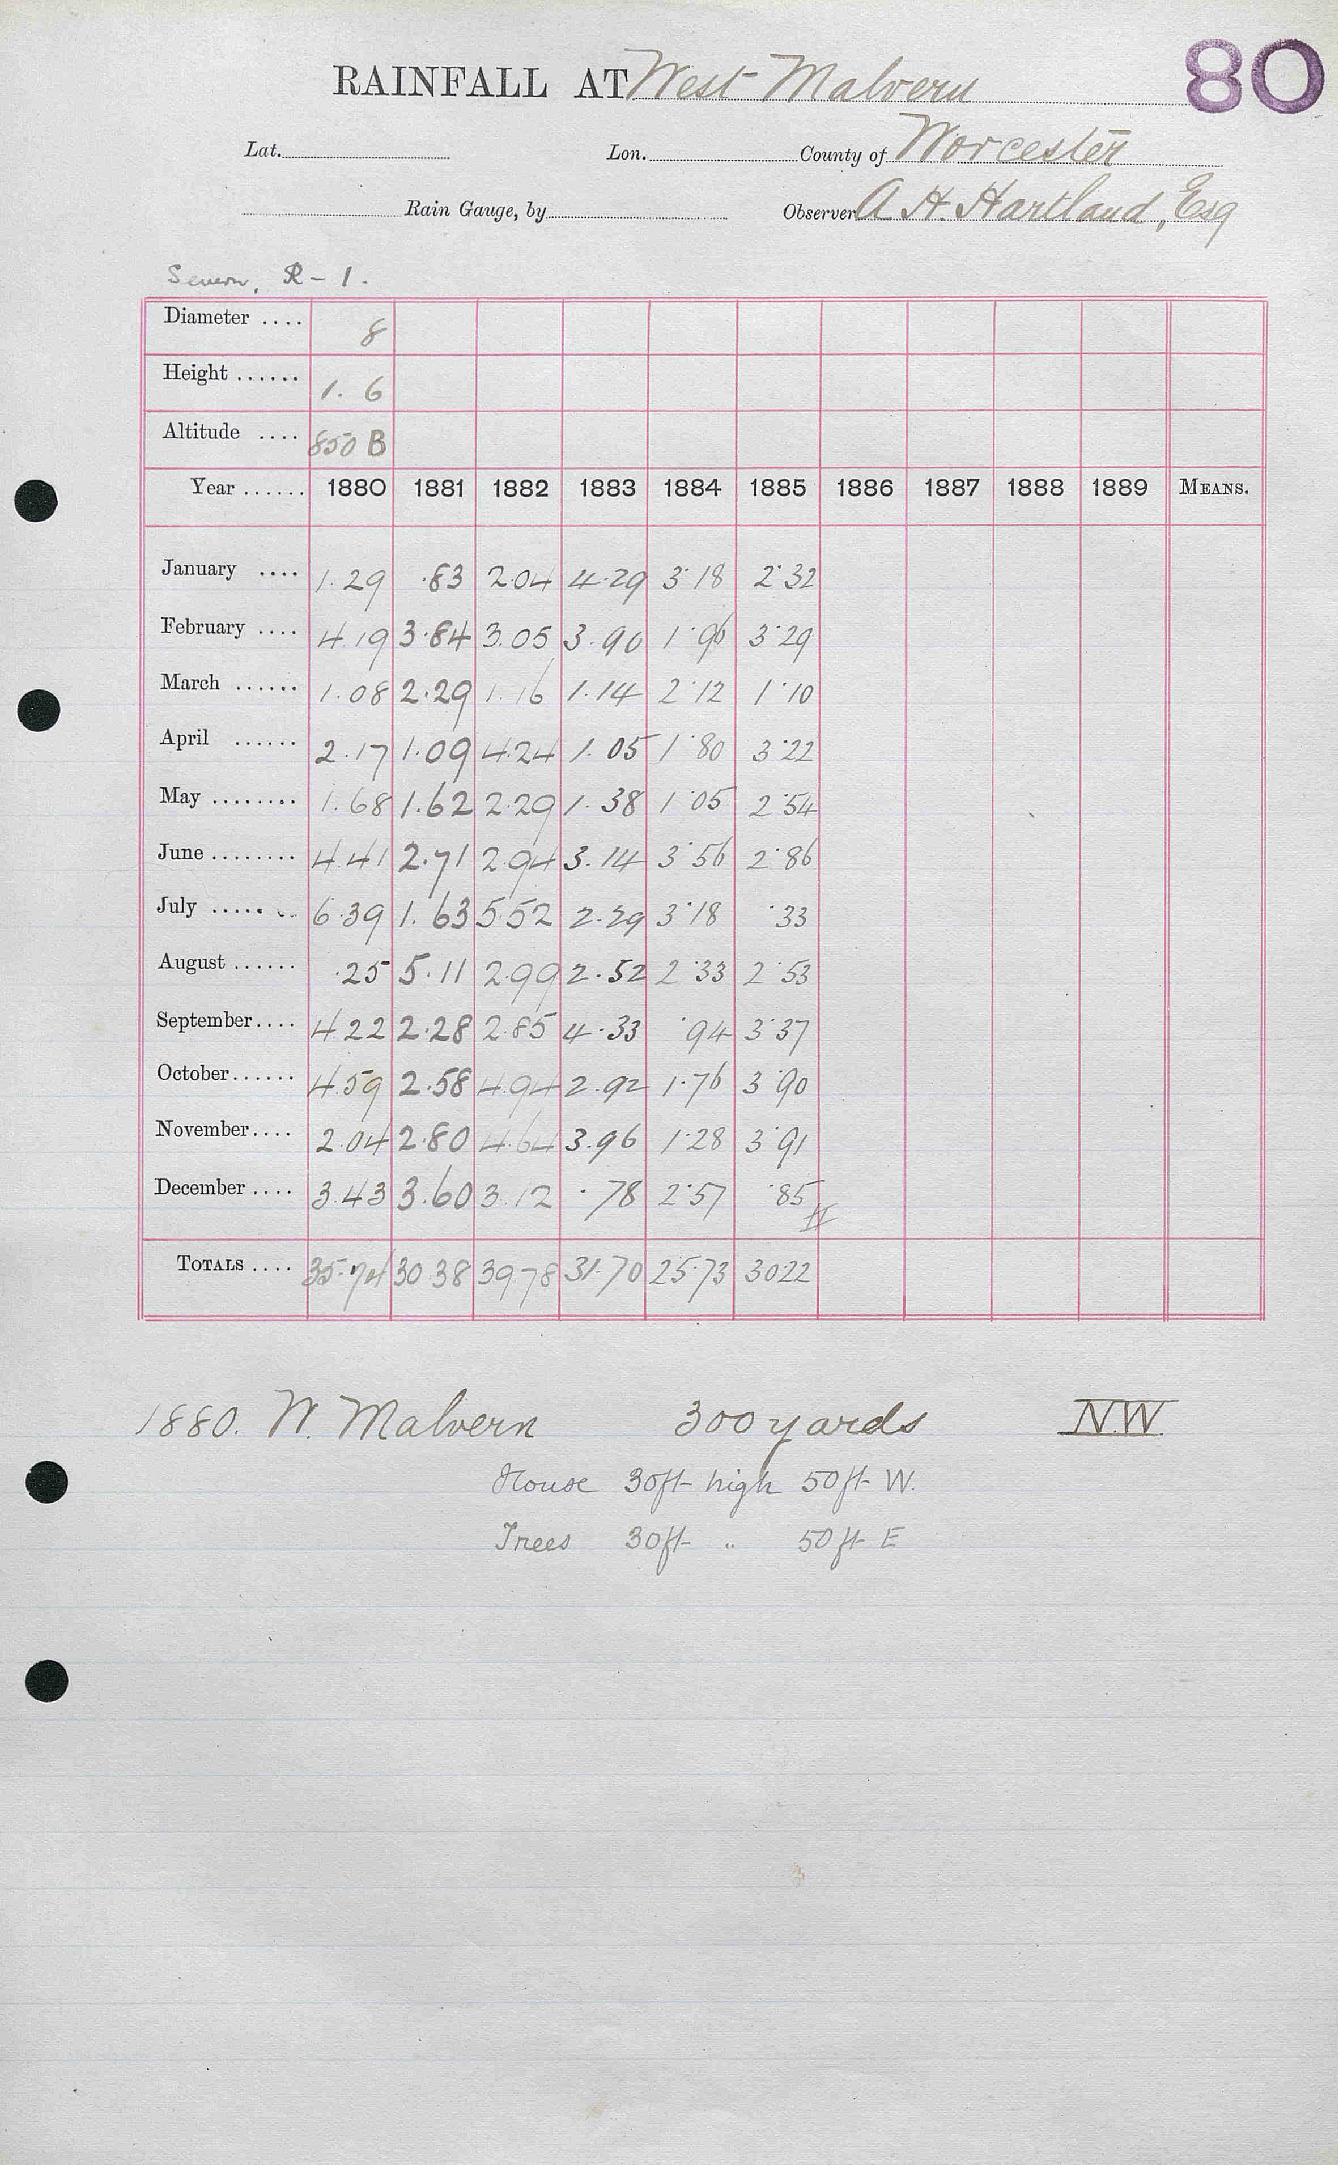 80
RAINFALL AT West Malvern
Lat. Lon. County of Worcester
Rain Gauge, by Observer A H. Hartland, Esq
Severn, R - 1.
Diameter .... 8
Height ...... 1. 6
Altitude .... 850 B
Year ...... 1880 1881 1882 1883 1884 1885 1886 1887 1888 1889 MEANS.
January .... 1.29 .83 2.04 4.29 3.18 2.32
February .... 4.19 3.84 3.05 3.90 1.96 3.29
March ...... 1.08 2.29 1.16 1.14 2.12 1.10
April ...... 2.17 1.09 4.24 1.05 1.80 3.22
May ........ 1.68 1.62 2.29 1.38 1.05 2.54
June ........ 4.41 2.71 2.94 3.14 3.56 2.86
July ........ 6.39 1.63 5.52 2.29 3.18 .33
August ...... .25 5.11 2.99 2.52 2.33 2.53
September.... 4.22 2.28 2.85 4.33 .94 3.37
October...... 4.59 2.58 4.94 2.92 1.76 3.90
November.... 2.04 2.80 4.64 3.96 1.28 3.91
December .... 3.43 3.60 3.12 .78 2.57 .85
TOTALS .... 35.74 30.38 39.78 31.70 25.73 30.22
1880. W. Malvern 300 yards N.W.
House 30ft high 50ft W.
Trees 30ft " 50ft E